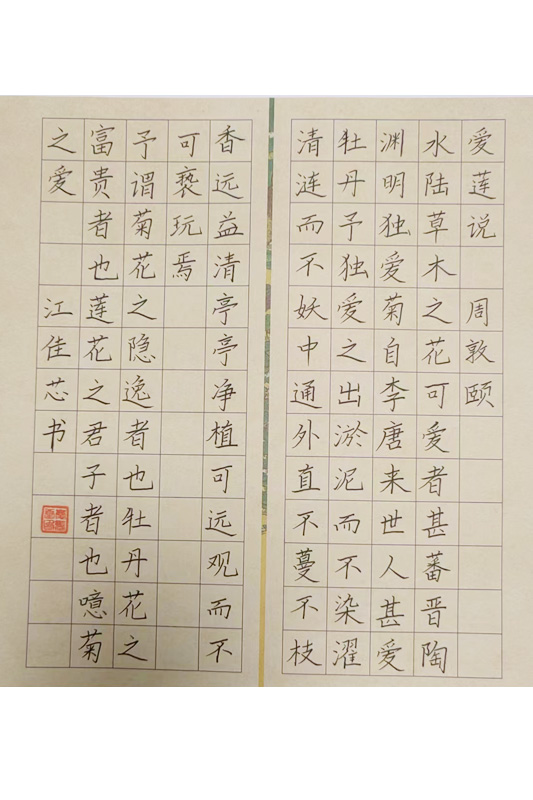 爱莲说 周敦颐
水陆草木之花可爱者甚蕃晋陶
渊明独爱菊自李唐来世人甚爱
牡丹予独爱之出淤泥而不染濯
清涟而不妖中通外直不蔓不枝
香远益清亭亭净植可远观而不
可亵玩焉
予谓菊花之隐逸者也牡丹花之
富贵者也莲花之君子者也噫菊
之爱 江佳芯书